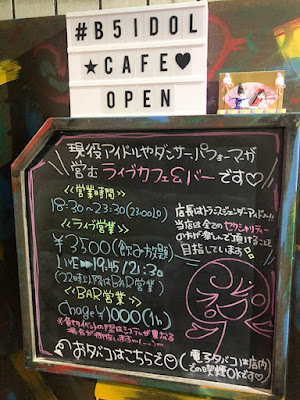 #B5IDOL
★CAFE♥
OPEN
現役アイドルやダンサー、パフォーマーが
営む ライブカフェ&バーです♡
<<営業時間>>
18:30~23:30(23:00LO)
<<ライブ営業>>
¥3500(飲み放題)
LIVE 19:45/21:30
(22時以降はBAR営業)
<<BAR営業>>
Charge¥1000(1h)
店長はトランスジェンダーアイドル!!
当店は全てのセクシャリティー
の方が楽しんで頂けることを
目指しています
※貸切イベントの際はシステムが異なる
場合が御座います
おタバコはこちらで
(電子タバコは店内
での喫煙OKです♡)